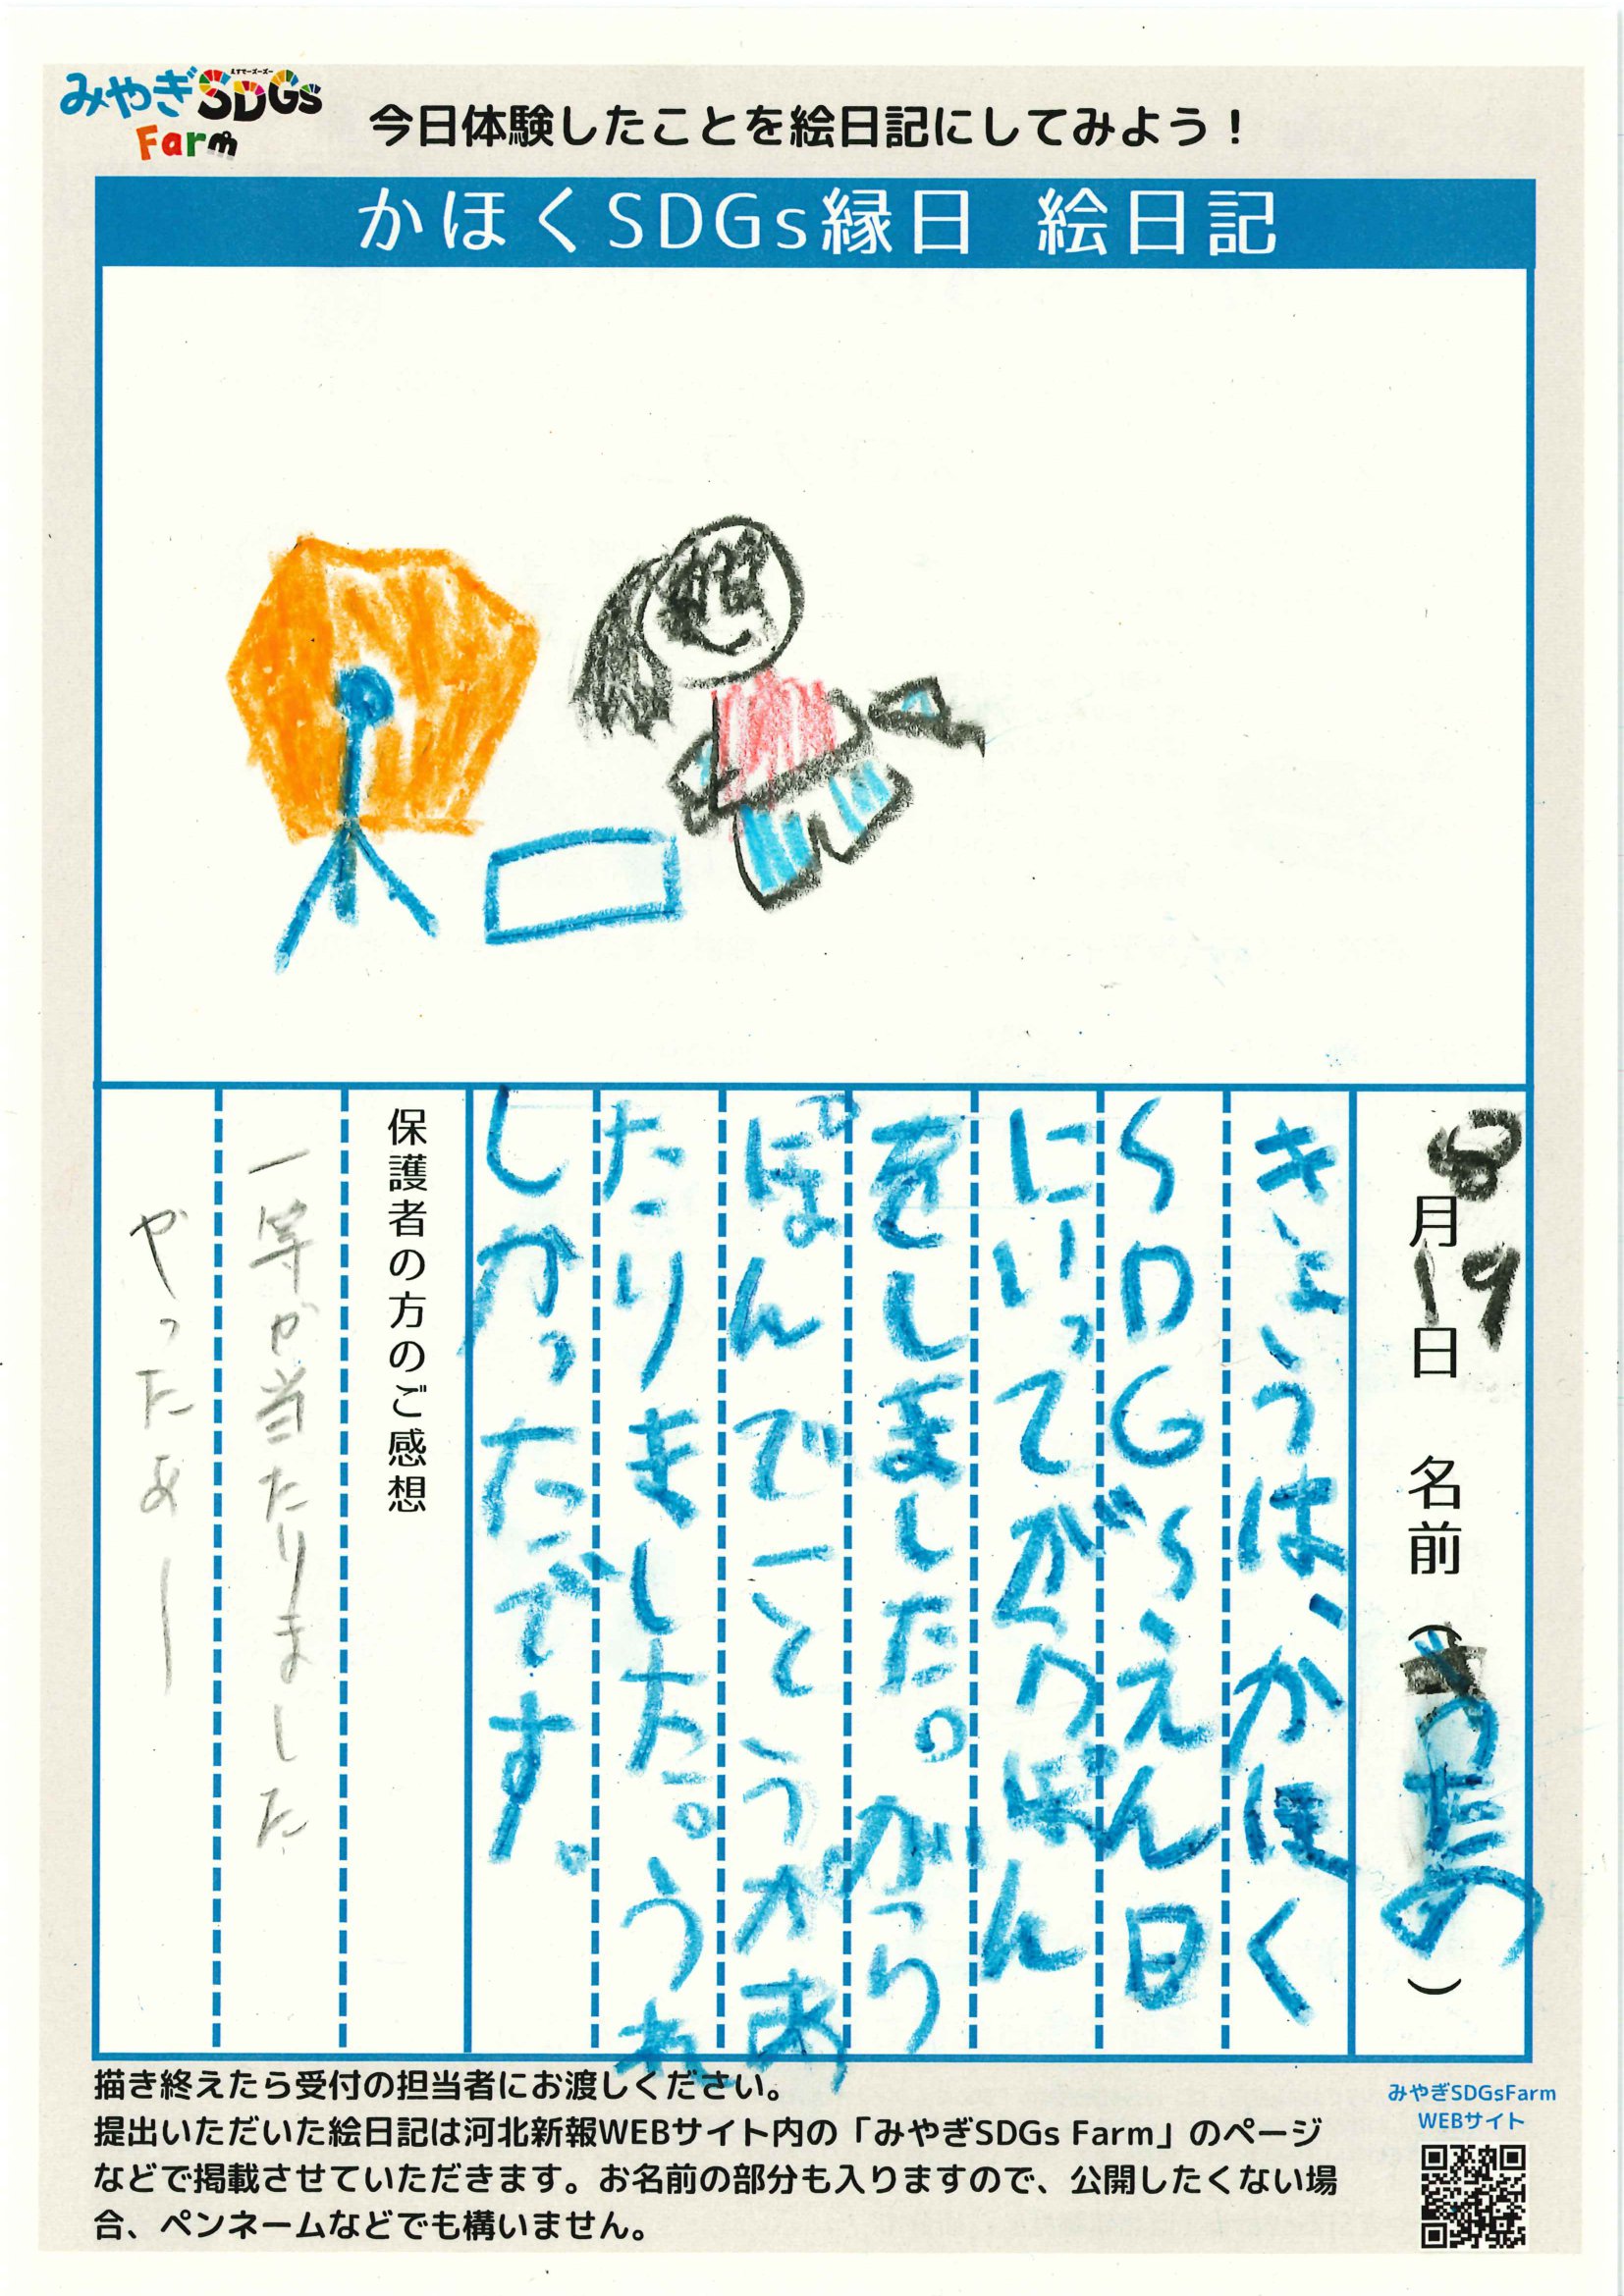 みやぎSDGs
Farm
今日体験したことを絵日記にしてみよう！
かほくSDGs縁日 絵日記
8月19日 名前（ ）
きょうは、かほく
SDGsえん日
にいってがらぽん
をしました。がら
ぽんで一とうがあ
たりました。うれ
しかったです。
保護者の方のご感想
一等が当たりました
やったぁー
描き終えたら受付の担当者にお渡しください。
提出いただいた絵日記は河北新報WEBサイト内の「みやぎSDGs Farm」のページ
などで掲載させていただきます。お名前の部分も入りますので、公開したくない場
合、ペンネームなどでも構いません。
みやぎSDGsFarm
WEBサイト